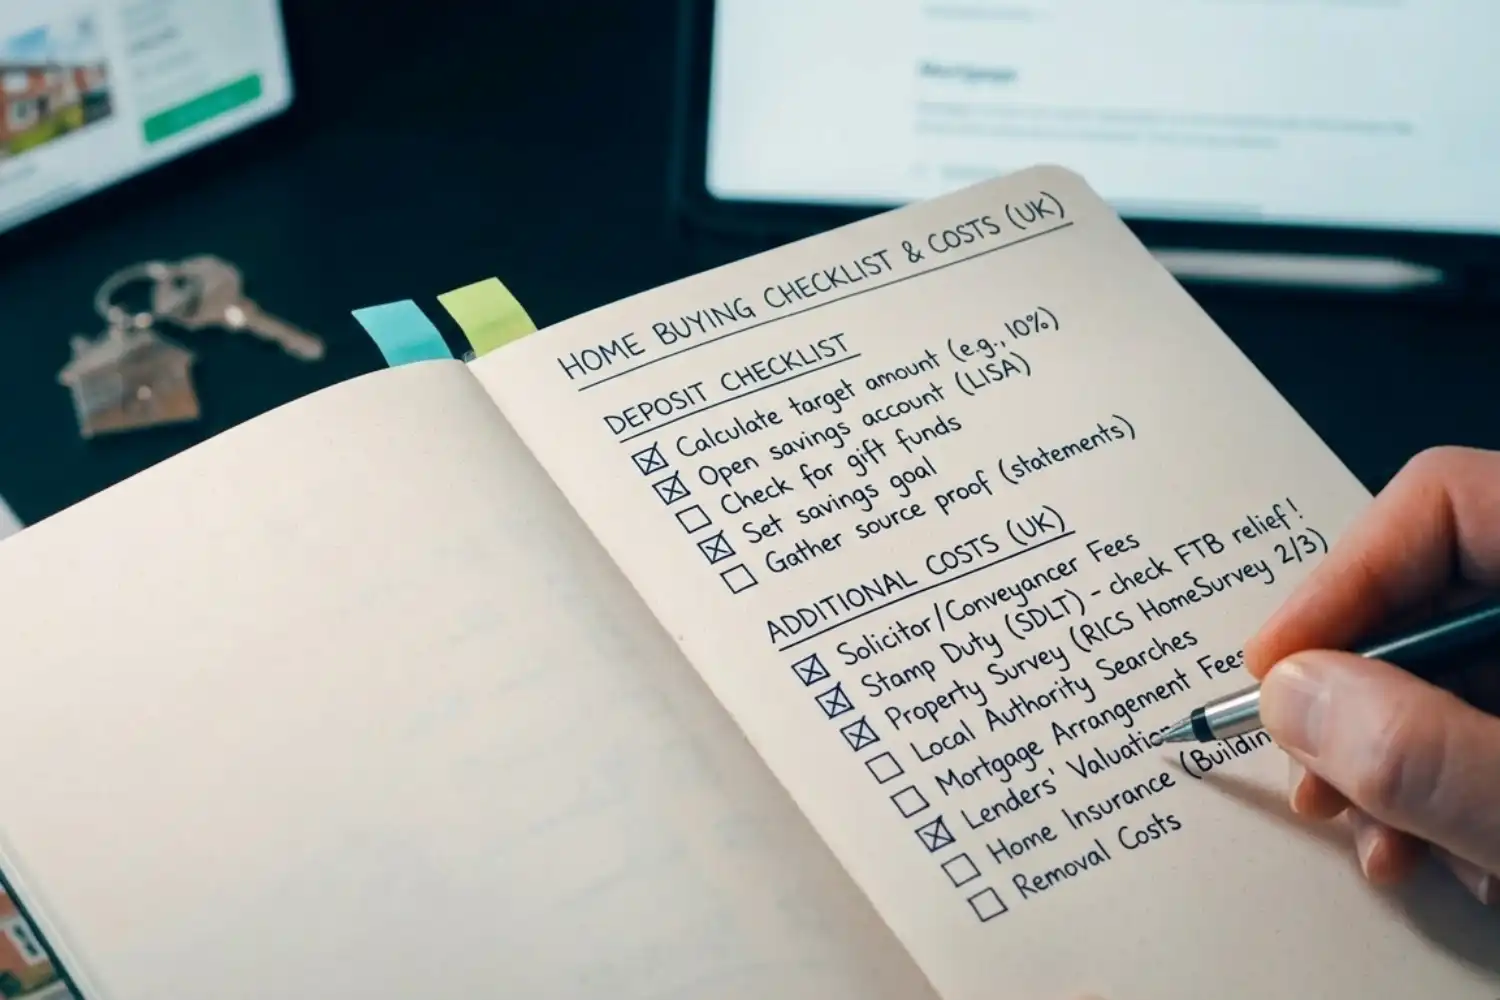 Mortgage
HOME BUYING CHECKLIST & COSTS (UK)
DEPOSIT CHECKLIST
Calculate target amount (e.g., 10%)
Open savings account (LISA)
Check for gift funds
Set savings goal
Gather source proof (statements)
ADDITIONAL COSTS (UK)
Solicitor/Conveyancer Fees
Stamp Duty (SDLT) - check FTB relief!
Property Survey (RICS HomeSurvey 2/3)
Local Authority Searches
Mortgage Arrangement Fees
Lenders' Valuation
Home Insurance (Buildin
Removal Costs